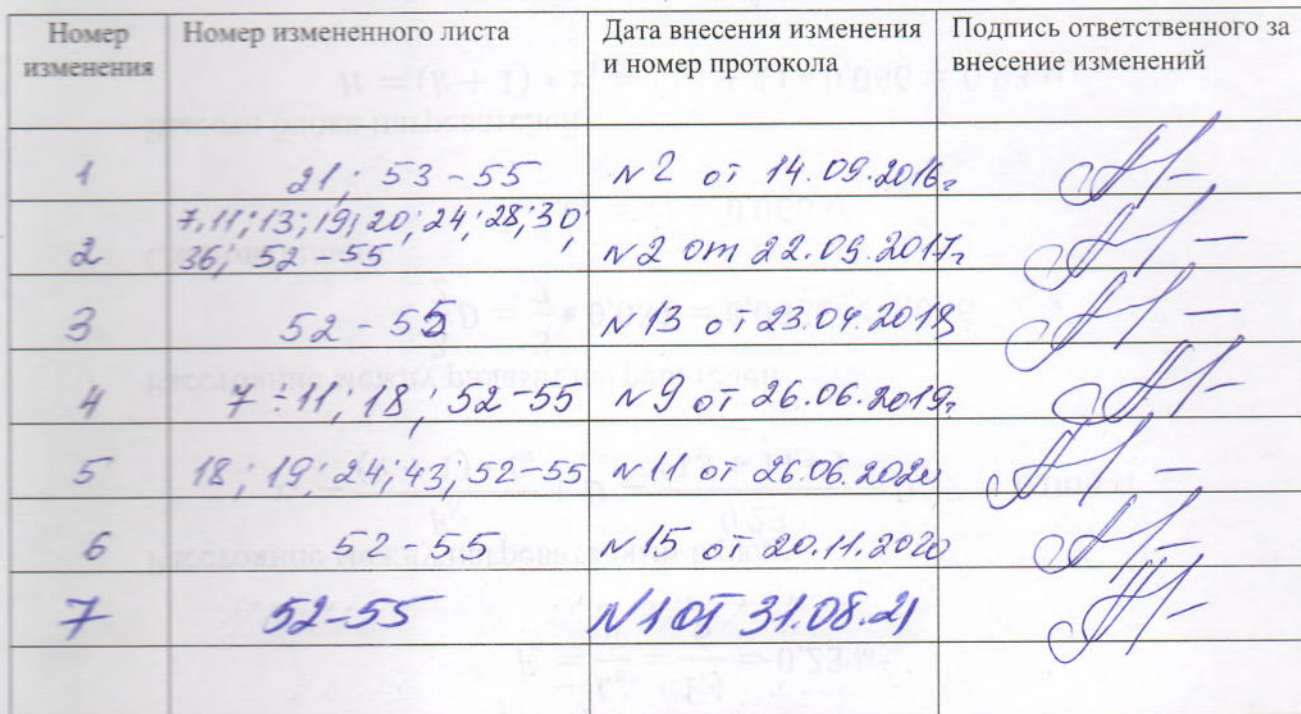 Номер изменения Номер измененного листа Дата внесения изменения и номер протокола Подпись ответственного за внесение изменений
1 21; 53-55 №2 от 14.09.2016г
2 7,11;13;19;20;24;28;30;
36; 52-55 №2 от 22.09.2017г
3 52-55 №13 от 23.04.2018
4 7÷11; 18; 52-55 №9 от 26.06.2019г
5 18; 19; 24; 43; 52-55 №11 от 26.06.2020
6 52-55 №15 от 20.11.2020
7 52-55 №1 от 31.08.21